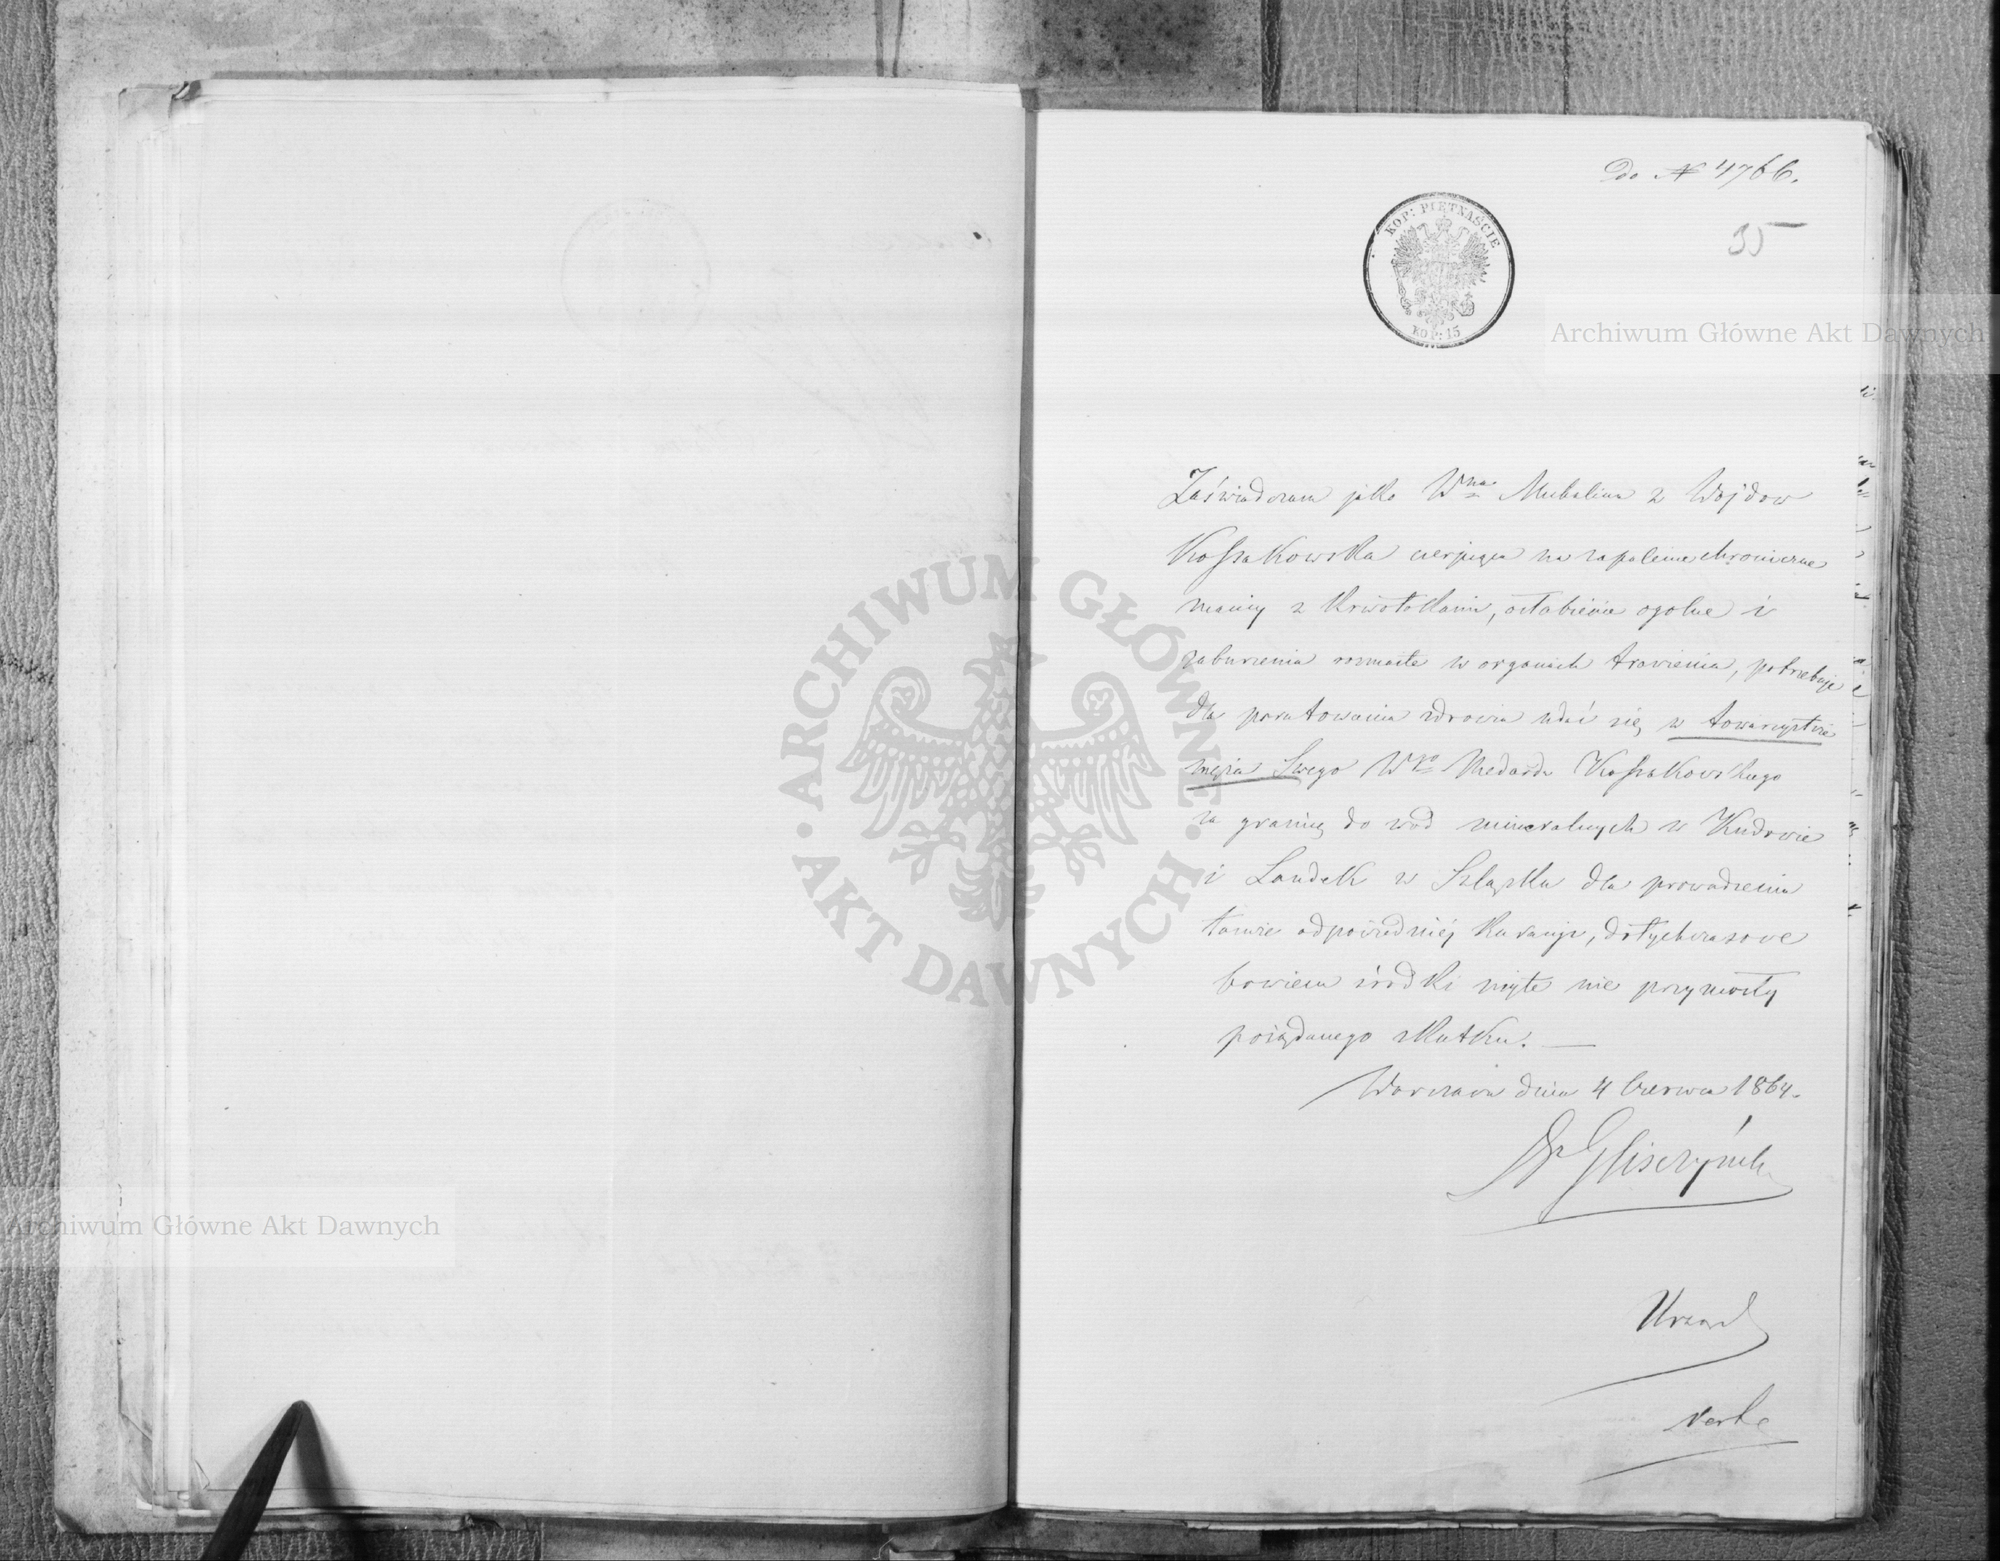 Do № 4766.
35
KOP: PIĘTNAŚCIE
KOP: 15
Archiwum Główne Akt Dawnych
Zaświadczam jako Wna Michalina z Wojdow
Kossakowska cierpiąca na zapalenie chroniczne
macicy z Krwotokami, osłabienie ogolne i
zaburzenia rozmaite w organach trawienia, potrzebuje
dla poratowania zdrowia udać się w towarzystwie
męża Swego Wgo Medarda Kossakowskiego
za granicę do wod mineralnych w Kudowie
i Landek w Szląsku dla prowadzenia
tamże odpowiedniej Kuracyi, dotychczasowe
bowiem środki użyte nie przyniosły
pożądanego skutku. —
Warszawa dnia 4 Czerwca 1864.
Dr Gliszczyński
ARCHIWUM GŁÓWNE AKT DAWNYCH
Archiwum Główne Akt Dawnych